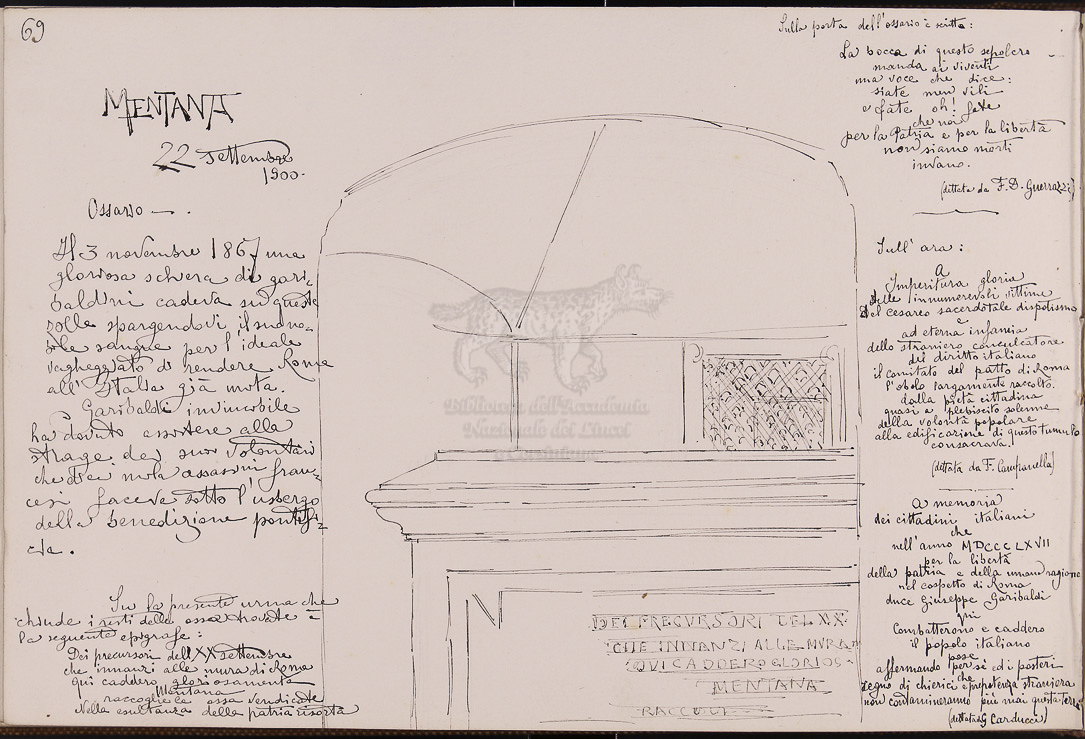 69
MENTANA
22 Settembre
1900.
Ossario — .
Il 3 novembre 1867 una
gloriosa schiera di gari-
baldini cadeva su queste
zolle spargendovi il suo no-
bile sangue per l'ideale
vagheggiato di rendere Roma
all'Italia già nata.
Garibaldi invincibile
ha dovuto assistere alla
strage dei suoi volontari
che dei
assassini fran-
cesi faceva sotto l'usbergo
della benedizione pontifi-
cia.
Su la presente urna che
chiude i resti delle ossa trovate è
la seguente epigrafe:
Dei precursori del XX Settembre
che innanzi alle mura di Roma
qui caddero gloriosamente
Mentana
raccoglie le ossa vendicate
Nella esultanza della patria risorta
DEI PRECURSORI DEL XX
CHE INNANZI ALLE MURA
QUI CADDERO GLORIOS
MENTANA
RACCOGL
Sulla porta dell'ossario è scritto:
La bocca di questo sepolcro
manda ai viventi
una voce che dice:
siate men vili
e fate oh! fate
che noi
per la Patria e per la libertà
non siamo morti
invano.
(dettata da F. D. Guerrazzi)
Sull'ara:
A
Imperitura gloria
delle innumerevoli vittime
Del cesareo sacerdotale dispotismo
e
ad eterna infamia
dello straniero conculcatore
del diritto italiano
il comitato del patto di Roma
l'obolo largamente raccolto
dalla pietà cittadina
quasi a plebiscito solenne
della volontà popolare
alla edificazione di questo tumulo
consacrava.
(dettata da F. Campanella)
A memoria
dei cittadini italiani
che
nell'anno MDCCCLXVII
per la libertà
della patria e della umana ragione
nel cospetto di Roma
duce Giuseppe Garibaldi
qui
Combatterono e caddero
il popolo italiano
pose
affermando per sè ed i posteri
che
segno di chierici e prepotenza straniera
non contamineranno più mai questa terra
(dettata da G Carducci)
Biblioteca dell'Accademia
Nazionale dei Lincei
e Corsiniana